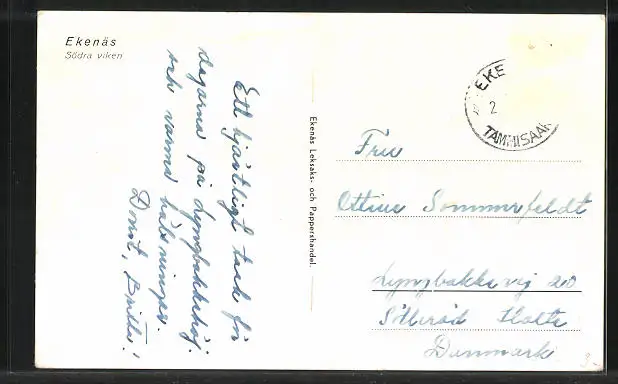 Ekenäs
Södra viken
Ett hjärtligt tack för
dagarna på Lyngbakkehøj.
och varma hälsningar.
Britta!
Ekenäs Leksaks- och Pappershandel.
EKE
2
TAMMISAARI
Fru
Ottilie Sommerfeldt
Lyngbakkevej 20
Holte
Danmark